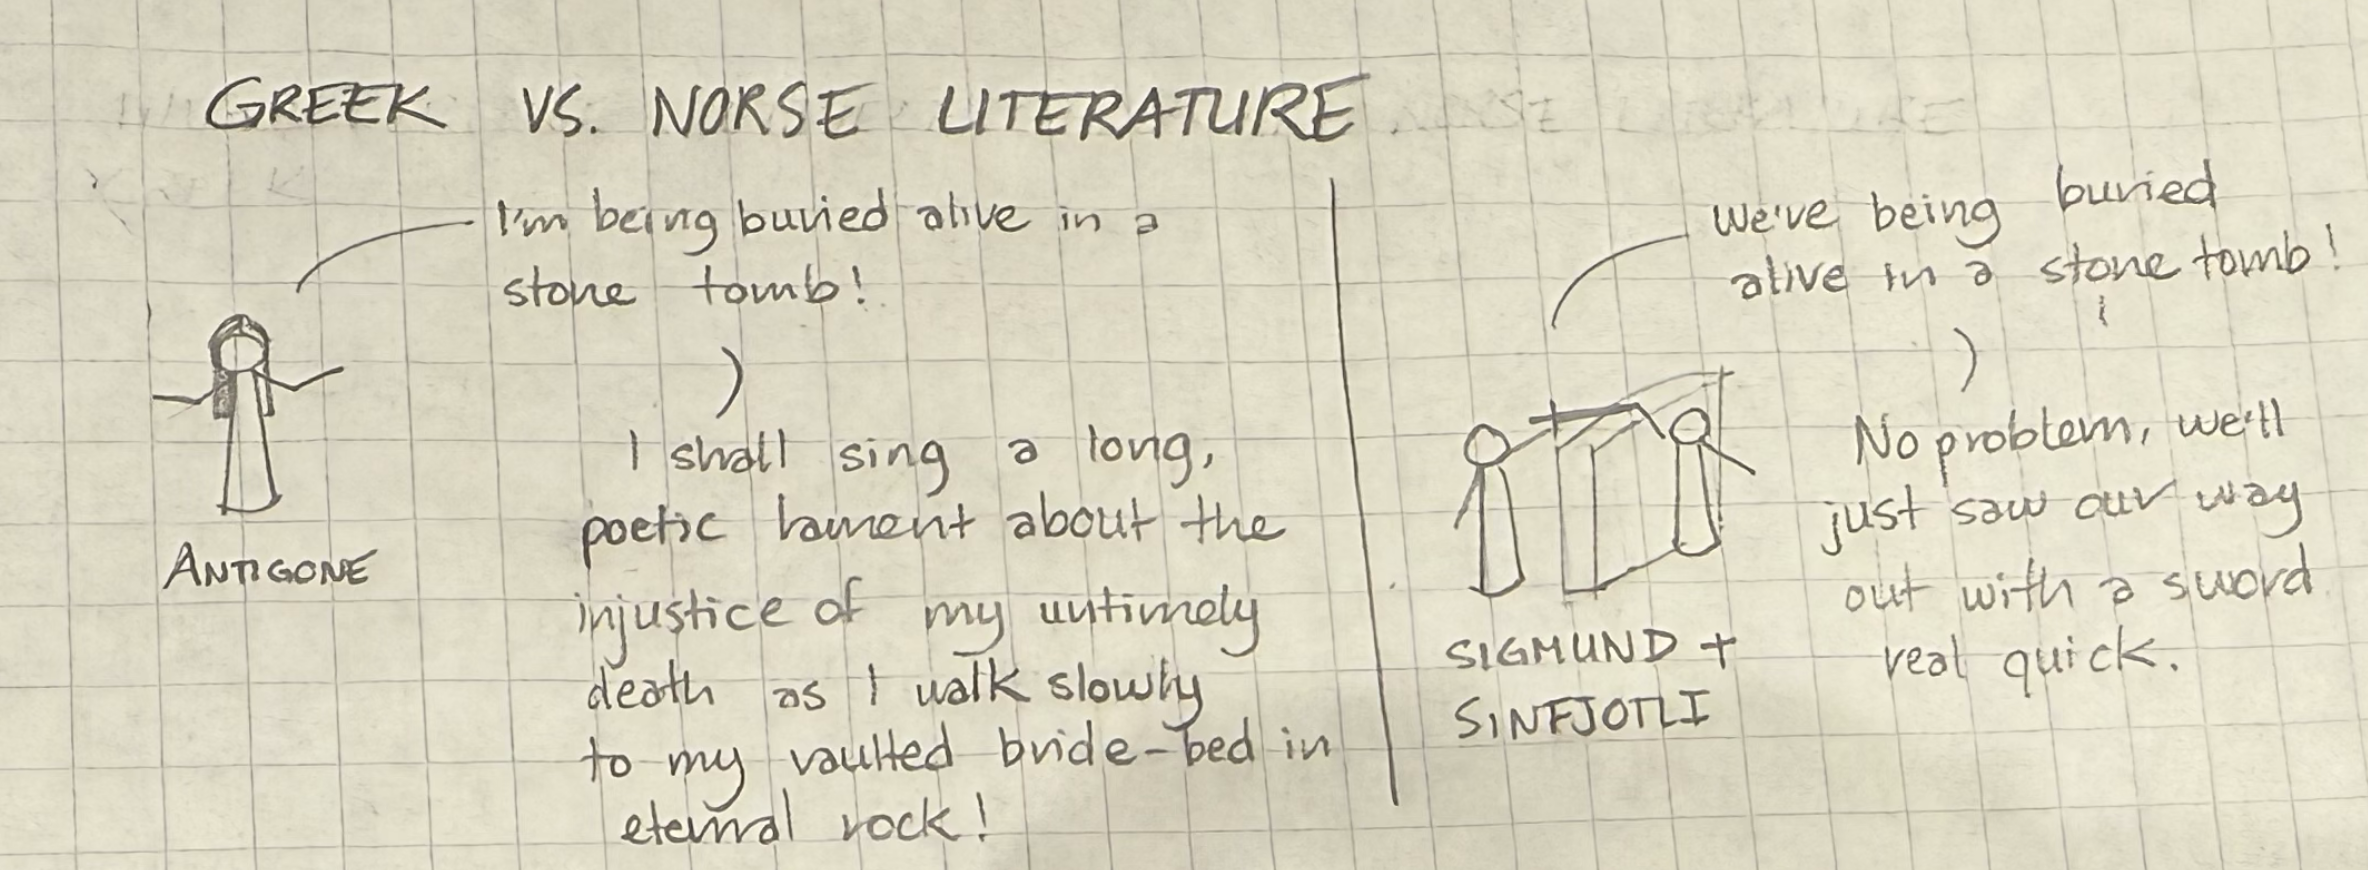 GREEK VS. NORSE LITERATURE
I'm being buried alive in a
stone tomb!
I shall sing a long,
poetic lament about the
injustice of my untimely
death as I walk slowly
to my vaulted bride-bed in
eternal rock!
ANTIGONE
We've being buried
alive in a stone tomb!
No problem, we'll
just saw our way
out with a sword
real quick.
SIGMUND +
SINFJOTLI